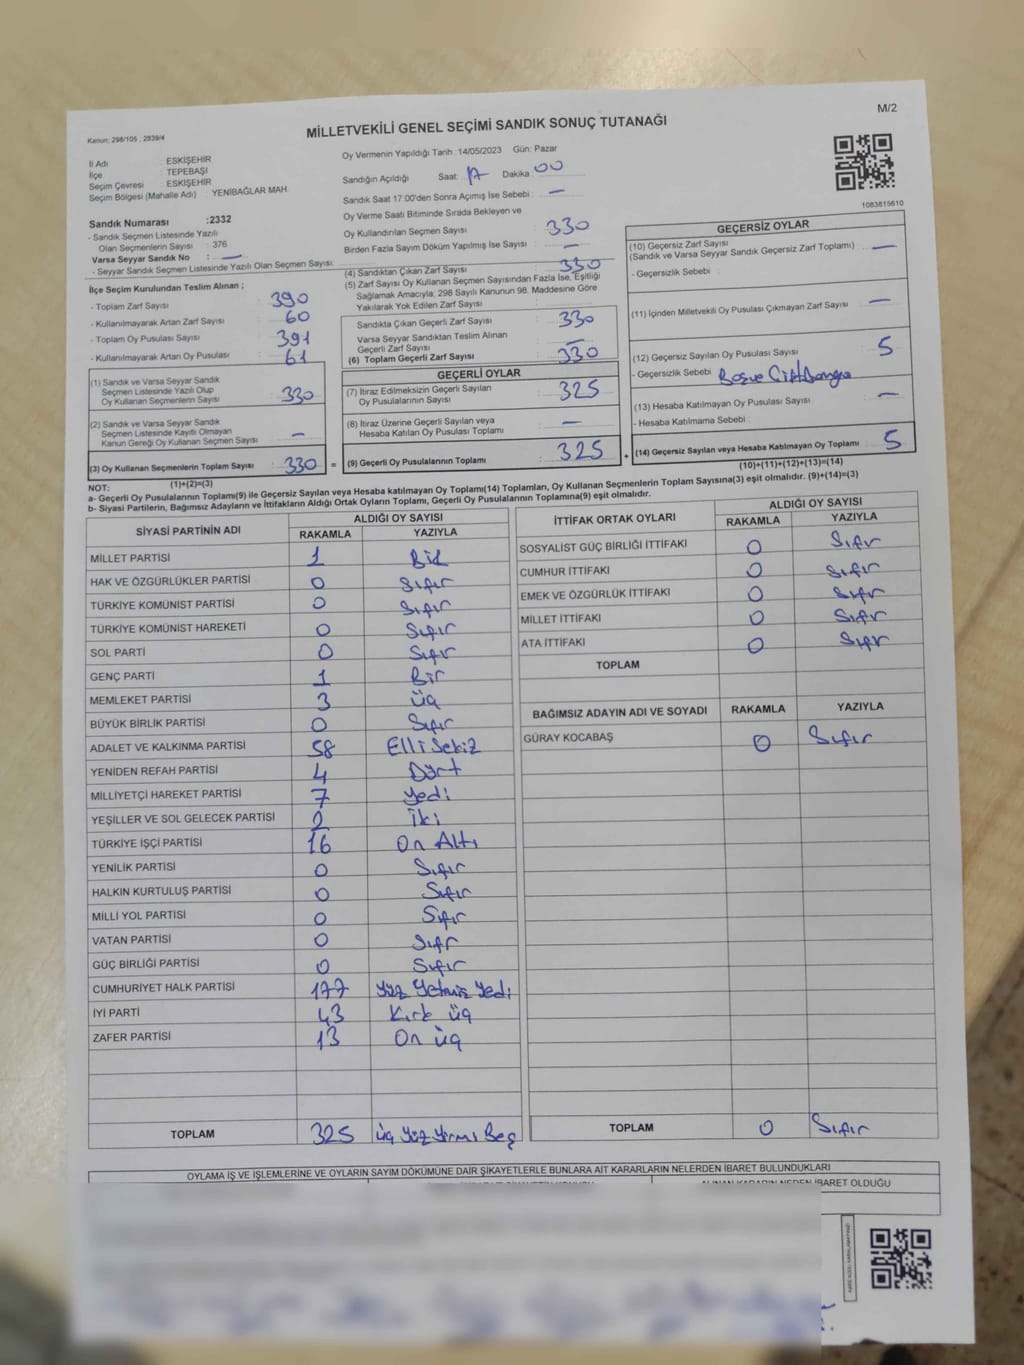 M/2
Kanun: 298/105 , 2839/4
MİLLETVEKİLİ GENEL SEÇİMİ SANDIK SONUÇ TUTANAĞI
İl Adı : ESKİŞEHİR
İlçe : TEPEBAŞI
Seçim Çevresi : ESKİŞEHİR
Seçim Bölgesi (Mahalle Adı) : YENİBAĞLAR MAH.
Sandık Numarası :2332
- Sandık Seçmen Listesinde Yazılı
Olan Seçmenlerin Sayısı : 376
Varsa Seyyar Sandık No : —
- Seyyar Sandık Seçmen Listesinde Yazılı Olan Seçmen Sayısı:
Oy Vermenin Yapıldığı Tarih : 14/05/2023 Gün: Pazar
Sandığın Açıldığı Saat: 17 Dakika : 00
Sandık Saat 17:00'den Sonra Açımış İse Sebebi : —
Oy Verme Saati Bitiminde Sırada Bekleyen ve
Oy Kullandırılan Seçmen Sayısı : 330
Birden Fazla Sayım Döküm Yapılmış İse Sayısı : —
1083815610
İlçe Seçim Kurulundan Teslim Alınan ;
- Toplam Zarf Sayısı : 390
- Kullanılmayarak Artan Zarf Sayısı : 60
- Toplam Oy Pusulası Sayısı : 391
- Kullanılmayarak Artan Oy Pusulası : 61
(1) Sandık ve Varsa Seyyar Sandık
Seçmen Listesinde Yazılı Olup
Oy Kullanan Seçmenlerin Sayısı : 330
(2) Sandık ve Varsa Seyyar Sandık
Seçmen Listesinde Kayıtlı Olmayan
Kanun Gereği Oy Kullanan Seçmen Sayısı : —
(3) Oy Kullanan Seçmenlerin Toplam Sayısı : 330 =
(1)+(2)=(3)
(4) Sandıktan Çıkan Zarf Sayısı : 330
(5) Zarf Sayısı Oy Kullanan Seçmen Sayısından Fazla İse, Eşitliği
Sağlamak Amacıyla, 298 Sayılı Kanunun 98. Maddesine Göre
Yakılarak Yok Edilen Zarf Sayısı :
Sandıkta Çıkan Geçerli Zarf Sayısı : 330
Varsa Seyyar Sandıktan Teslim Alınan
Geçerli Zarf Sayısı : —
(6) Toplam Geçerli Zarf Sayısı : 330
GEÇERLİ OYLAR
(7) İtiraz Edilmeksizin Geçerli Sayılan
Oy Pusulalarının Sayısı : 325
(8) İtiraz Üzerine Geçerli Sayılan veya
Hesaba Katılan Oy Pusulası Toplamı : —
(9) Geçerli Oy Pusulalarının Toplamı : 325 +
GEÇERSİZ OYLAR
(10) Geçersiz Zarf Sayısı
(Sandık ve Varsa Seyyar Sandık Geçersiz Zarf Toplamı) : —
- Geçersizlik Sebebi :
(11) İçinden Milletvekili Oy Pusulası Çıkmayan Zarf Sayısı : —
(12) Geçersiz Sayılan Oy Pusulası Sayısı : 5
- Geçersizlik Sebebi :
(13) Hesaba Katılmayan Oy Pusulası Sayısı : —
- Hesaba Katılmama Sebebi :
(14) Geçersiz Sayılan veya Hesaba Katılmayan Oy Toplamı : 5
(10)+(11)+(12)+(13)=(14)
NOT:
a- Geçerli Oy Pusulalarının Toplamı(9) ile Geçersiz Sayılan veya Hesaba katılmayan Oy Toplamı(14) Toplamları, Oy Kullanan Seçmenlerin Toplam Sayısına(3) eşit olmalıdır. (9)+(14)=(3)
b- Siyasi Partilerin, Bağımsız Adayların ve İttifakların Aldığı Ortak Oyların Toplamı, Geçerli Oy Pusulalarının Toplamına(9) eşit olmalıdır.
SİYASİ PARTİNİN ADI ALDIĞI OY SAYISI
RAKAMLA YAZIYLA
MİLLET PARTİSİ 1 Bir
HAK VE ÖZGÜRLÜKLER PARTİSİ 0 Sıfır
TÜRKİYE KOMÜNİST PARTİSİ 0 Sıfır
TÜRKİYE KOMÜNİST HAREKETİ 0 Sıfır
SOL PARTİ 0 Sıfır
GENÇ PARTİ 1 Bir
MEMLEKET PARTİSİ 3 üç
BÜYÜK BİRLİK PARTİSİ 0 Sıfır
ADALET VE KALKINMA PARTİSİ 58 Elli Sekiz
YENİDEN REFAH PARTİSİ 4 Dört
MİLLİYETÇİ HAREKET PARTİSİ 7 yedi
YEŞİLLER VE SOL GELECEK PARTİSİ 2 İki
TÜRKİYE İŞÇİ PARTİSİ 16 On Altı
YENİLİK PARTİSİ 0 Sıfır
HALKIN KURTULUŞ PARTİSİ 0 Sıfır
MİLLİ YOL PARTİSİ 0 Sıfır
VATAN PARTİSİ 0 Sıfır
GÜÇ BİRLİĞİ PARTİSİ 0 Sıfır
CUMHURİYET HALK PARTİSİ 177 Yüz Yetmiş Yedi
İYİ PARTİ 43 Kırk üç
ZAFER PARTİSİ 13 On üç
TOPLAM 325 üç Yüz Yirmi Beş
İTTİFAK ORTAK OYLARI ALDIĞI OY SAYISI
RAKAMLA YAZIYLA
SOSYALİST GÜÇ BİRLİĞİ İTTİFAKI 0 Sıfır
CUMHUR İTTİFAKI 0 Sıfır
EMEK VE ÖZGÜRLÜK İTTİFAKI 0 Sıfır
MİLLET İTTİFAKI 0 Sıfır
ATA İTTİFAKI 0 Sıfır
TOPLAM
BAĞIMSIZ ADAYIN ADI VE SOYADI RAKAMLA YAZIYLA
GÜRAY KOCABAŞ 0 Sıfır
TOPLAM 0 Sıfır
OYLAMA İŞ VE İŞLEMLERİNE VE OYLARIN SAYIM DÖKÜMÜNE DAİR ŞİKAYETLERLE BUNLARA AİT KARARLARIN NELERDEN İBARET BULUNDUKLARI
ALINAN KARARIN NEDEN İBARET OLDUĞU